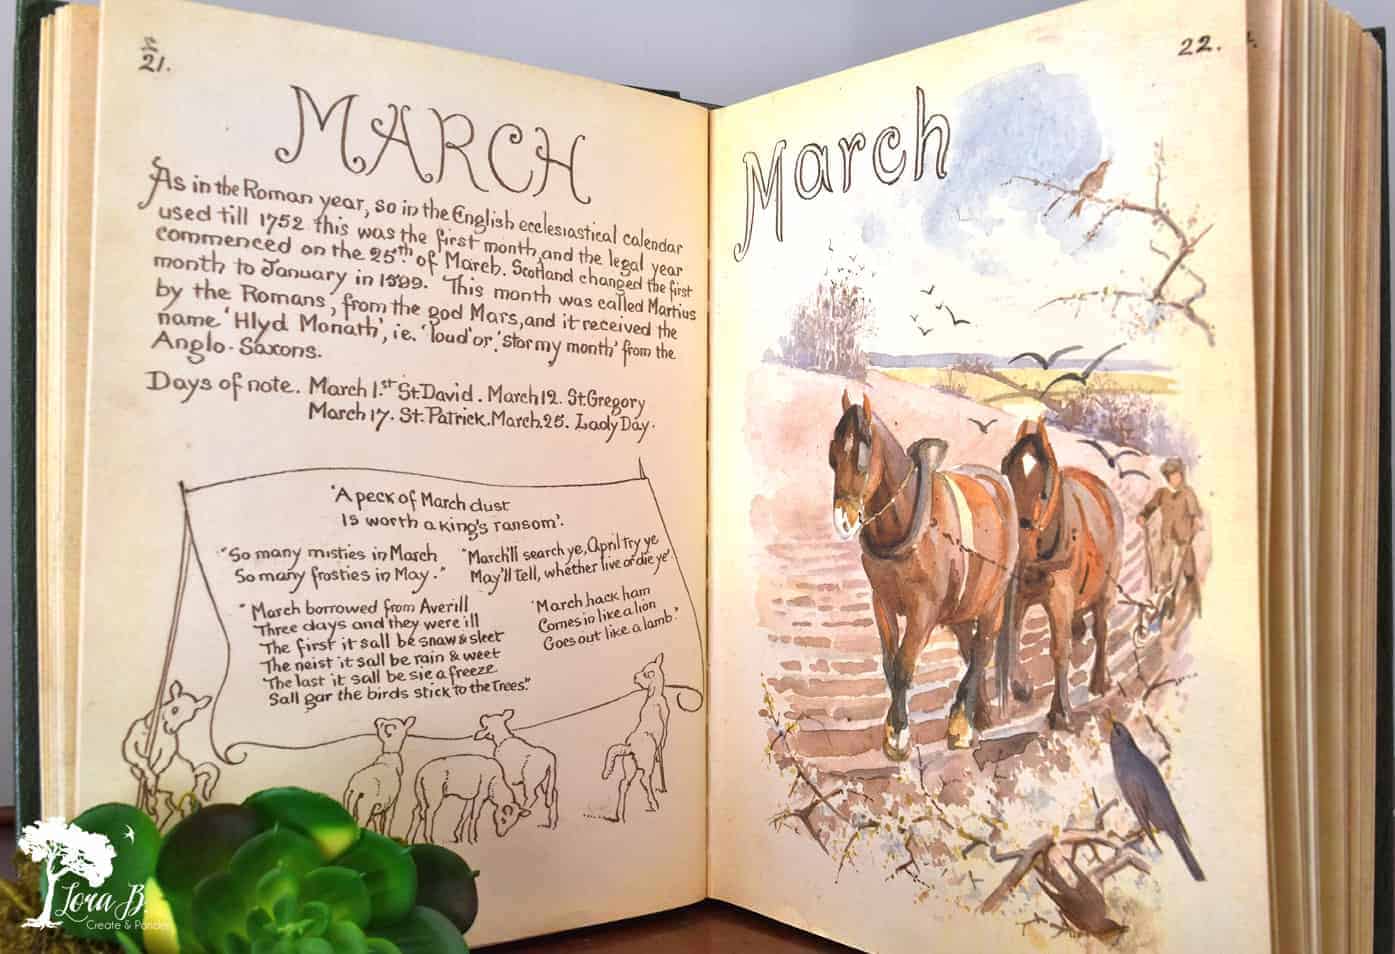 21.
MARCH
As in the Roman year, so in the English ecclesiastical calendar
used till 1752 this was the first month, and the legal year
commenced on the 25th of March. Scotland changed the first
month to January in 1599. This month was called Martius
by the Romans, from the god Mars, and it received the
name 'Hlyd Monath', ie. 'loud' or 'stormy month' from the
Anglo-Saxons.
Days of note. March 1.st St. David. March 12. St. Gregory
March 17. St. Patrick. March 25. Lady Day.
'A peck of March dust
Is worth a king's ransom'.
"So many misties in March
So many frosties in May."
"March'll search ye, April try ye
May'll tell, whether live or die ye'
"March borrowed from Averill
Three days and they were ill
The first it sall be snaw & sleet
The neist it sall be rain & weet
The last it sall be sic a freeze
Sall gar the birds stick to the trees."
'March, hack ham
Comes in like a lion
Goes out like a lamb."
22.
March
Lora B.
Create & Ponder